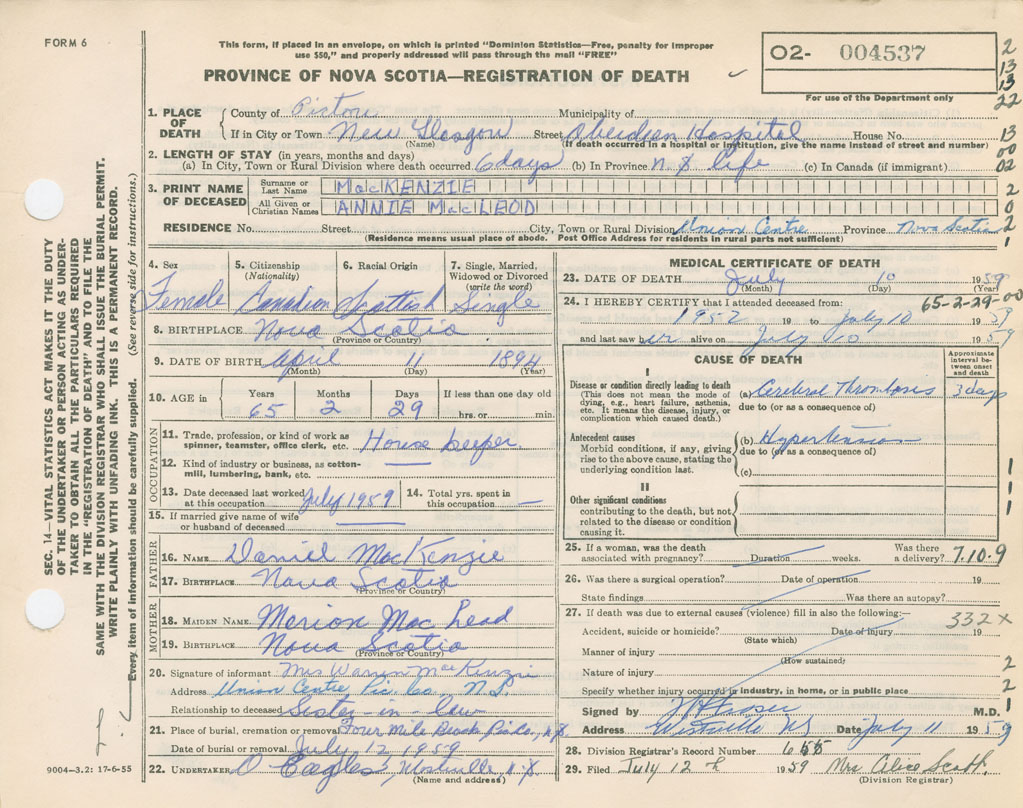 FORM 6
This form, if placed in an envelope, on which is printed "Dominion Statistics—Free, penalty for improper
use $50," and properly addressed will pass through the mail "FREE"
PROVINCE OF NOVA SCOTIA—REGISTRATION OF DEATH
O2- 004537
For use of the Department only
2
13
13
22
1. PLACE OF DEATH
County of Pictou Municipality of
If in City or Town New Glasgow Street Aberdeen Hospital House No.
(Name) (If death occurred in a hospital or institution, give the name instead of street and number)
13
00
02
2. LENGTH OF STAY (in years, months and days)
(a) In City, Town or Rural Division where death occurred 6 days (b) In Province N.S life (c) In Canada (if immigrant)
3. PRINT NAME OF DECEASED
Surname or Last Name MacKENZIE
All Given or Christian Names ANNIE MacLEOD
2
0
2
1
RESIDENCE No. Street City, Town or Rural Division Union Centre Province Nova Scotia
(Residence means usual place of abode. Post Office Address for residents in rural parts not sufficient)
4. Sex Female
5. Citizenship (Nationality) Canadian
6. Racial Origin Scottish
7. Single, Married, Widowed or Divorced (write the word) Single
8. BIRTHPLACE Nova Scotia
(Province or Country)
9. DATE OF BIRTH April 11 1894
(Month) (Day) (Year)
10. AGE in Years 65 Months 2 Days 29 If less than one day old hrs. or min.
OCCUPATION
11. Trade, profession, or kind of work as spinner, teamster, office clerk, etc. House keeper
12. Kind of industry or business, as cotton-mill, lumbering, bank, etc. —
13. Date deceased last worked at this occupation July 1959
14. Total yrs. spent in this occupation —
15. If married give name of wife or husband of deceased —
FATHER
16. NAME Daniel MacKenzie
17. BIRTHPLACE Nova Scotia
(Province or Country)
MOTHER
18. MAIDEN NAME Merion Mac Lead
19. BIRTHPLACE Nova Scotia
(Province or Country)
20. Signature of informant Mrs Warren MacKenzie
Address Union Centre Pic. Co. N.S.
Relationship to deceased Sister-in-law
21. Place of burial, cremation or removal Four Mile Brook N.S
Date of burial or removal July 12 1959
22. UNDERTAKER D Eagles, Westville, N.S
(Name and address)
MEDICAL CERTIFICATE OF DEATH
23. DATE OF DEATH July 10 1959
(Month) (Day) (Year)
65-2-29-00
24. I HEREBY CERTIFY that I attended deceased from:
1952 19 to July 10 1959
and last saw her alive on July 10 1959
CAUSE OF DEATH
Approximate interval between onset and death
I
Disease or condition directly leading to death
(This does not mean the mode of dying, e.g., heart failure, asthenia, etc. It means the disease, injury, or complication which caused death.)
(a) Cerebral Thrombosis 3 days
due to (or as a consequence of)
Antecedent causes
Morbid conditions, if any, giving rise to the above cause, stating the underlying condition last.
(b) Hypertension
due to (or as a consequence of)
(c)
II
Other significant conditions
contributing to the death, but not related to the disease or condition causing it.
1
1
1
25. If a woman, was the death associated with pregnancy? Duration weeks. Was there a delivery? 7.10.9
26. Was there a surgical operation? Date of operation 19
State findings Was there an autopsy?
27. If death was due to external causes (violence) fill in also the following:—
332 X
Accident, suicide or homicide? Date of injury 19
(State which)
Manner of injury
(How sustained)
Nature of injury
Specify whether injury occurred in industry, in home, or in public place
2
2
1
Signed by M.D.
Address Westville NS Date July 11 1959
28. Division Registrar's Record Number 655
29. Filed July 12 th 1959 Mrs Alice Scott
(Division Registrar)
SEC. 14—VITAL STATISTICS ACT MAKES IT THE DUTY
OF THE UNDERTAKER OR PERSON ACTING AS UNDER-
TAKER TO OBTAIN ALL THE PARTICULARS REQUIRED
IN THE "REGISTRATION OF DEATH" AND TO FILE THE
SAME WITH THE DIVISION REGISTRAR WHO SHALL ISSUE THE BURIAL PERMIT.
WRITE PLAINLY WITH UNFADING INK. THIS IS A PERMANENT RECORD.
Every item of information should be carefully supplied. (See reverse side for instructions.)
9004-3.2: 17-6-55